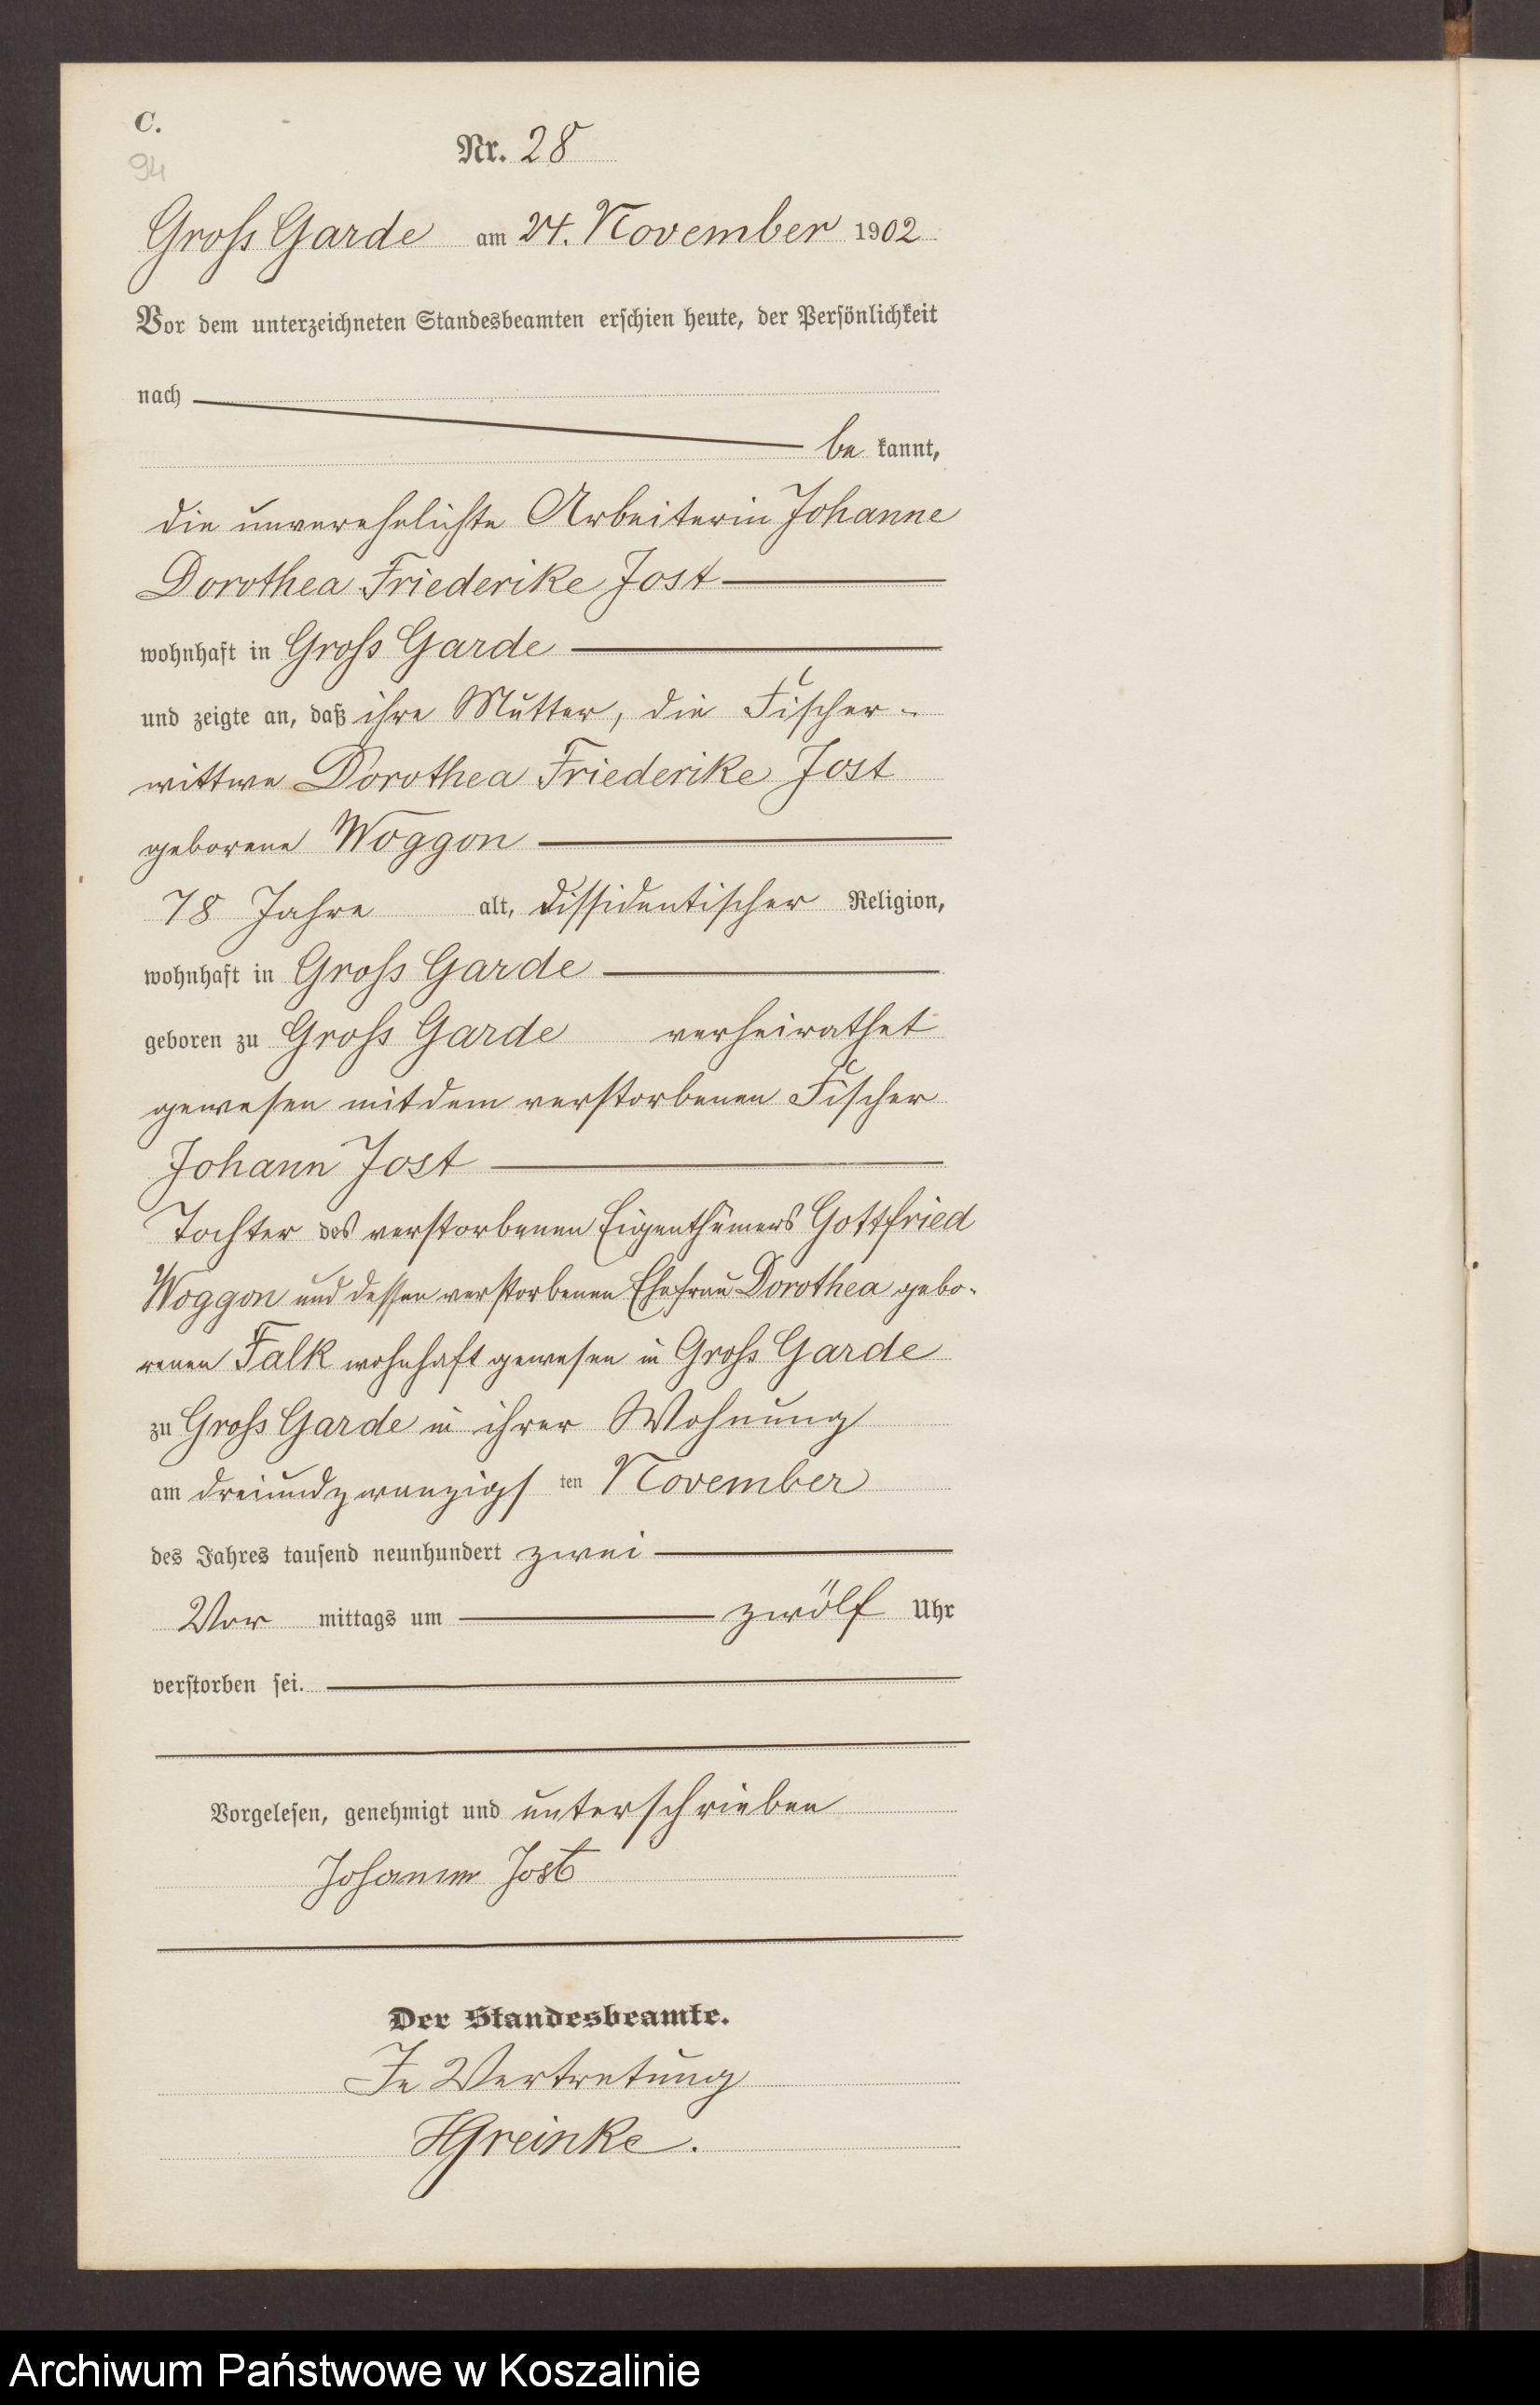 C.
94
Nr. 28
Gross Garde am 24. November 1902
Vor dem unterzeichneten Standesbeamten erschien heute, der Persönlichkeit
nach
be kannt,
die unverehelichte Arbeiterin Johanne
Dorothea Friederike Jost
wohnhaft in Gross Garde
und zeigte an, daß ihre Mutter, die Fischer-
wittwe Dorothea Friederike Jost
geborene Woggon
78 Jahre alt, dissidentischer Religion,
wohnhaft in Gross Garde
geboren zu Gross Garde verheirathet
gewesen mit dem verstorbenen Fischer
Johann Jost
Tochter des verstorbenen Eigenthümers Gottfried
Woggon und dessen verstorbenen Ehefrau Dorothea gebo-
renen Falk wohnhaft gewesen in Gross Garde
zu Gross Garde in ihrer Wohnung
am dreiundzwanzigs ten November
des Jahres tausend neunhundert zwei
Vor mittags um zwölf Uhr
verstorben sei.
Vorgelesen, genehmigt und unterschrieben
Johanne Jost
Der Standesbeamte.
In Vertretung
HGreinke.
Archiwum Państwowe w Koszalinie